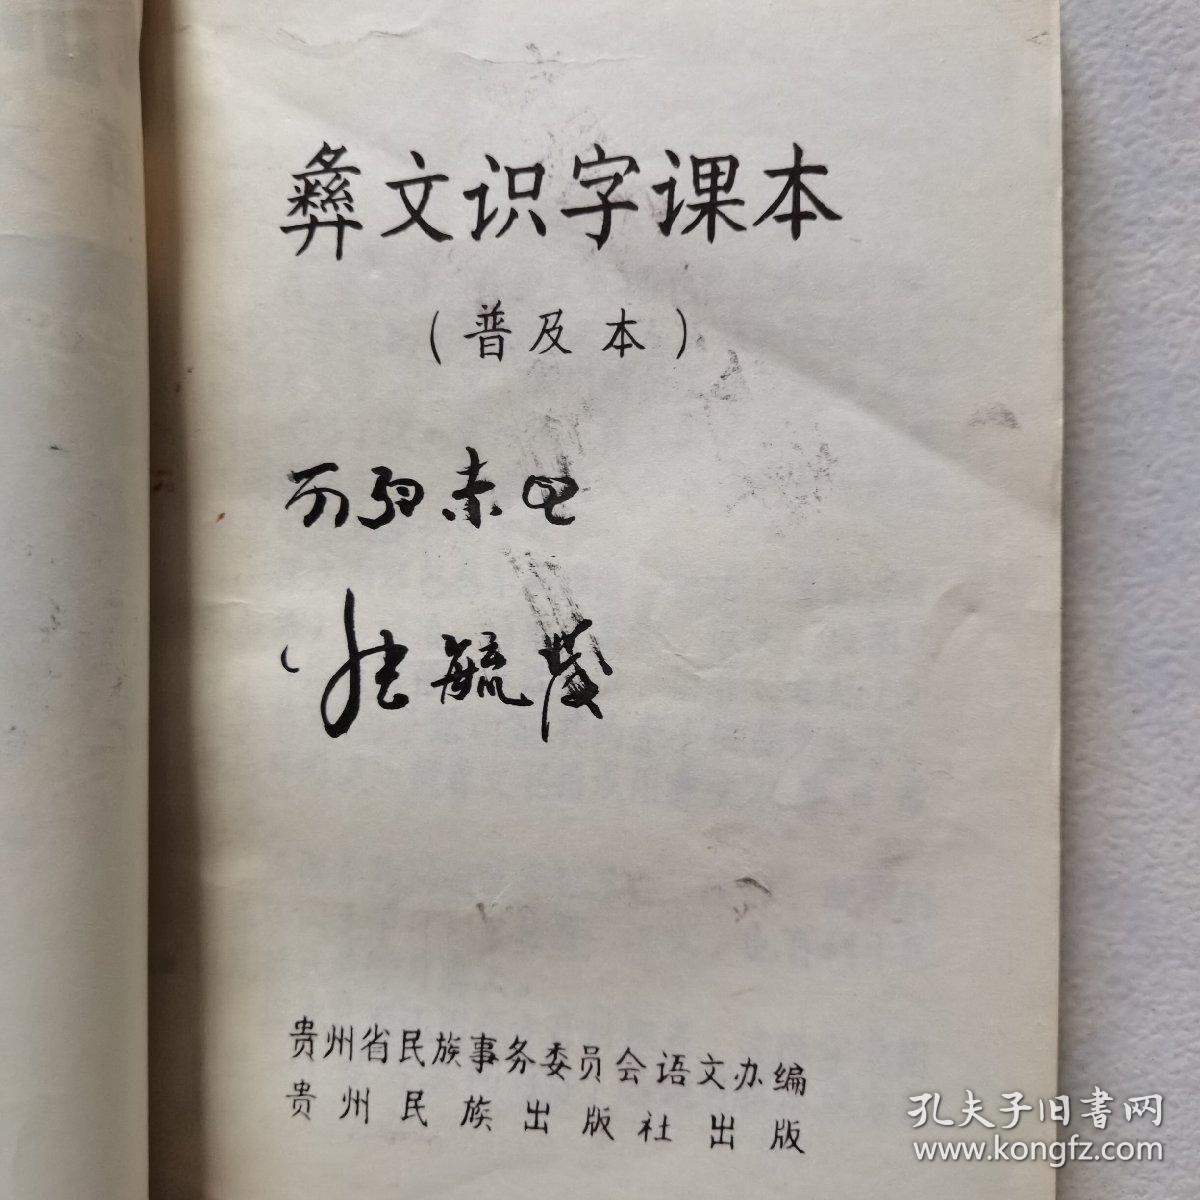 彝文识字课本
（普及本）
张毓茂
贵州省民族事务委员会语文办编
贵州民族出版社出版
孔夫子旧书网
www.kongfz.com